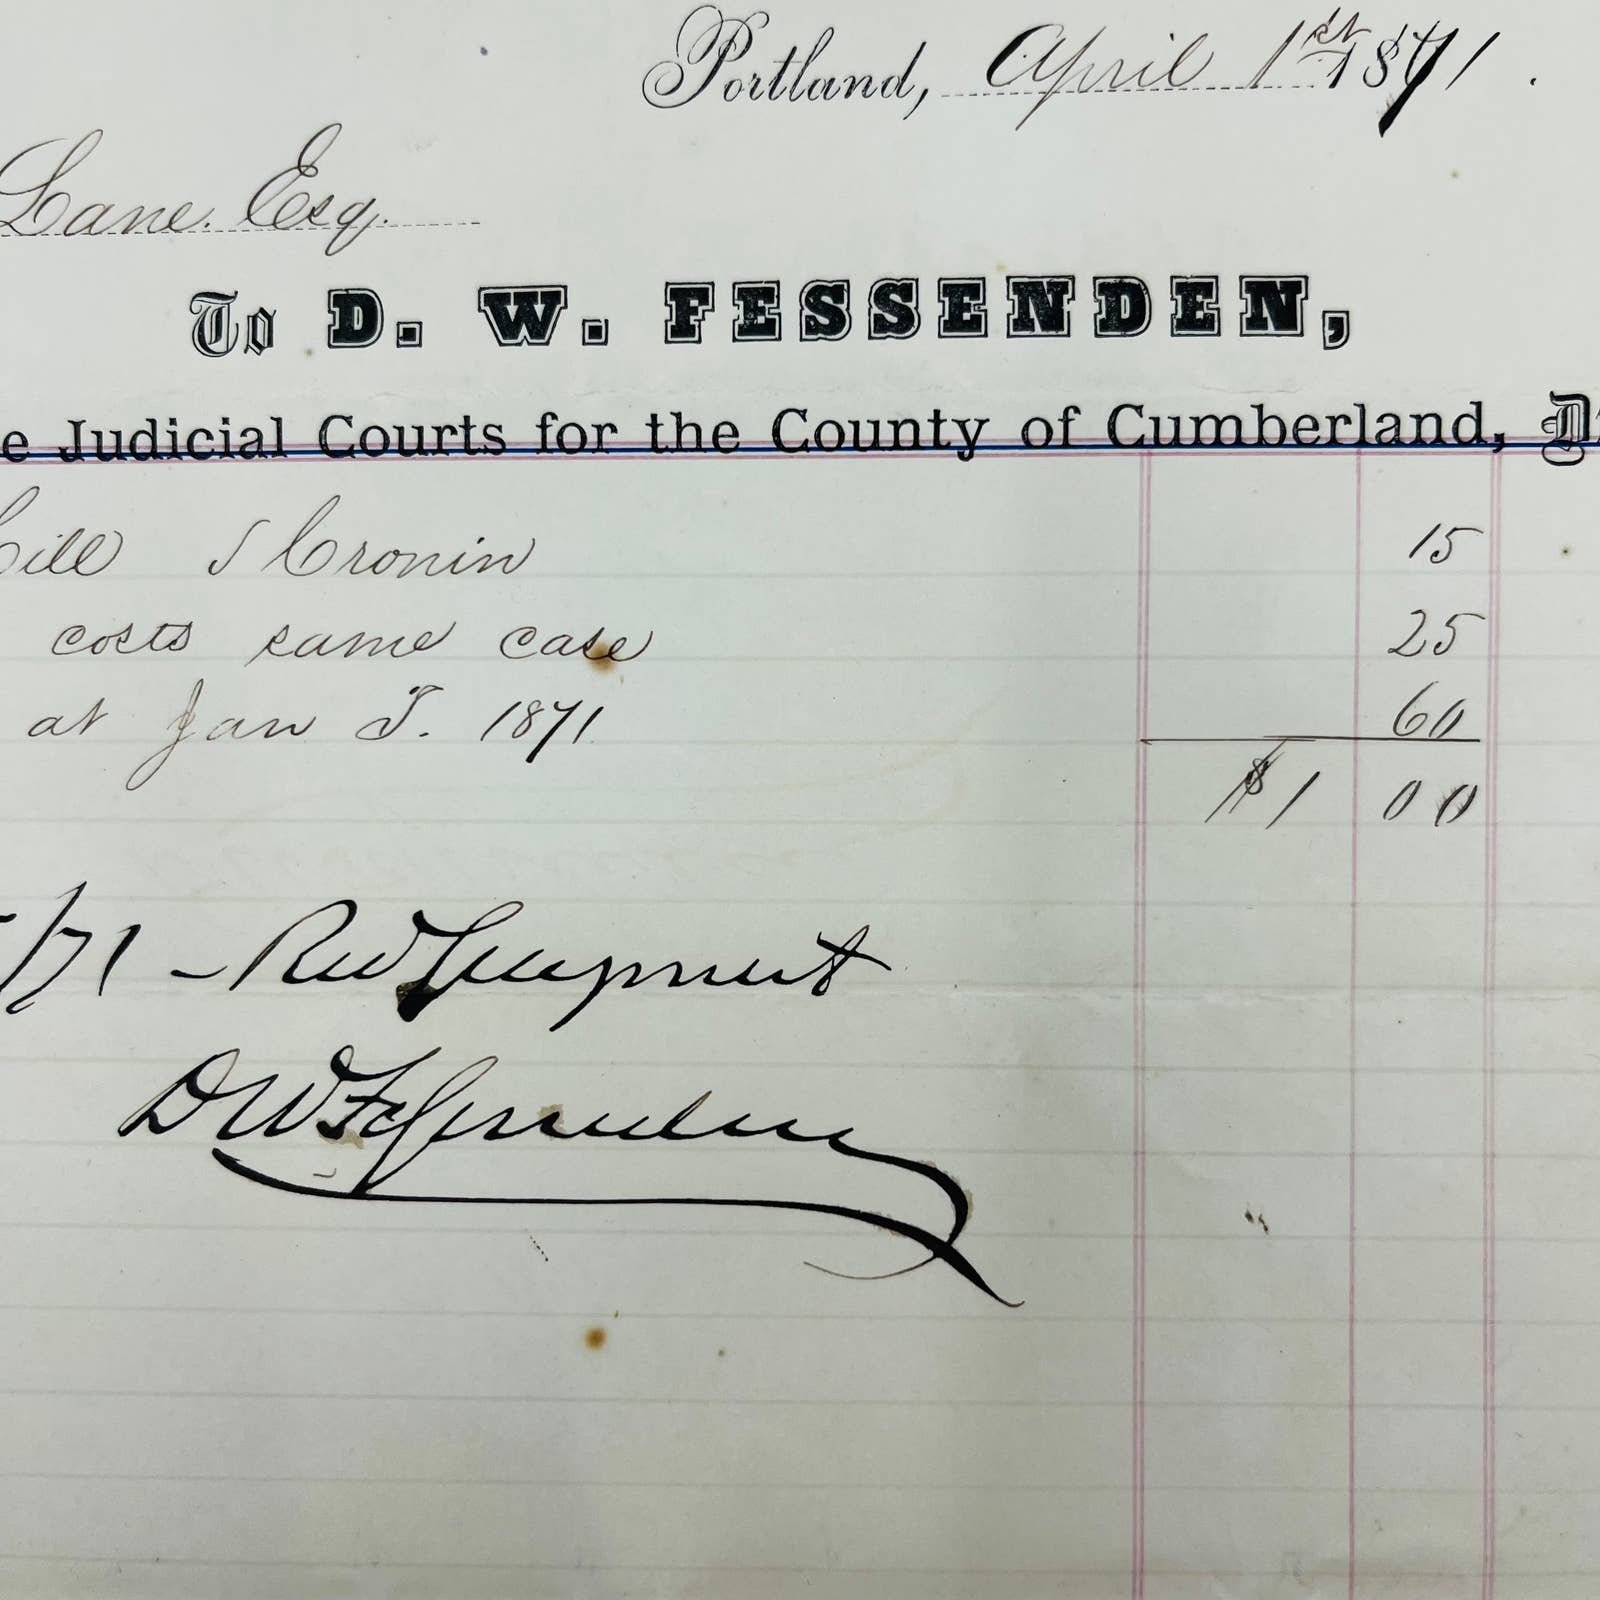 Portland, April 1st 1871.
Lane. Esq.
To D. W. FESSENDEN,
e Judicial Courts for the County of Cumberland, D
Cronin 15
costs same case 25
at Jan T. 1871 60
$1 00
/71 - Recd payment
DW Fessenden